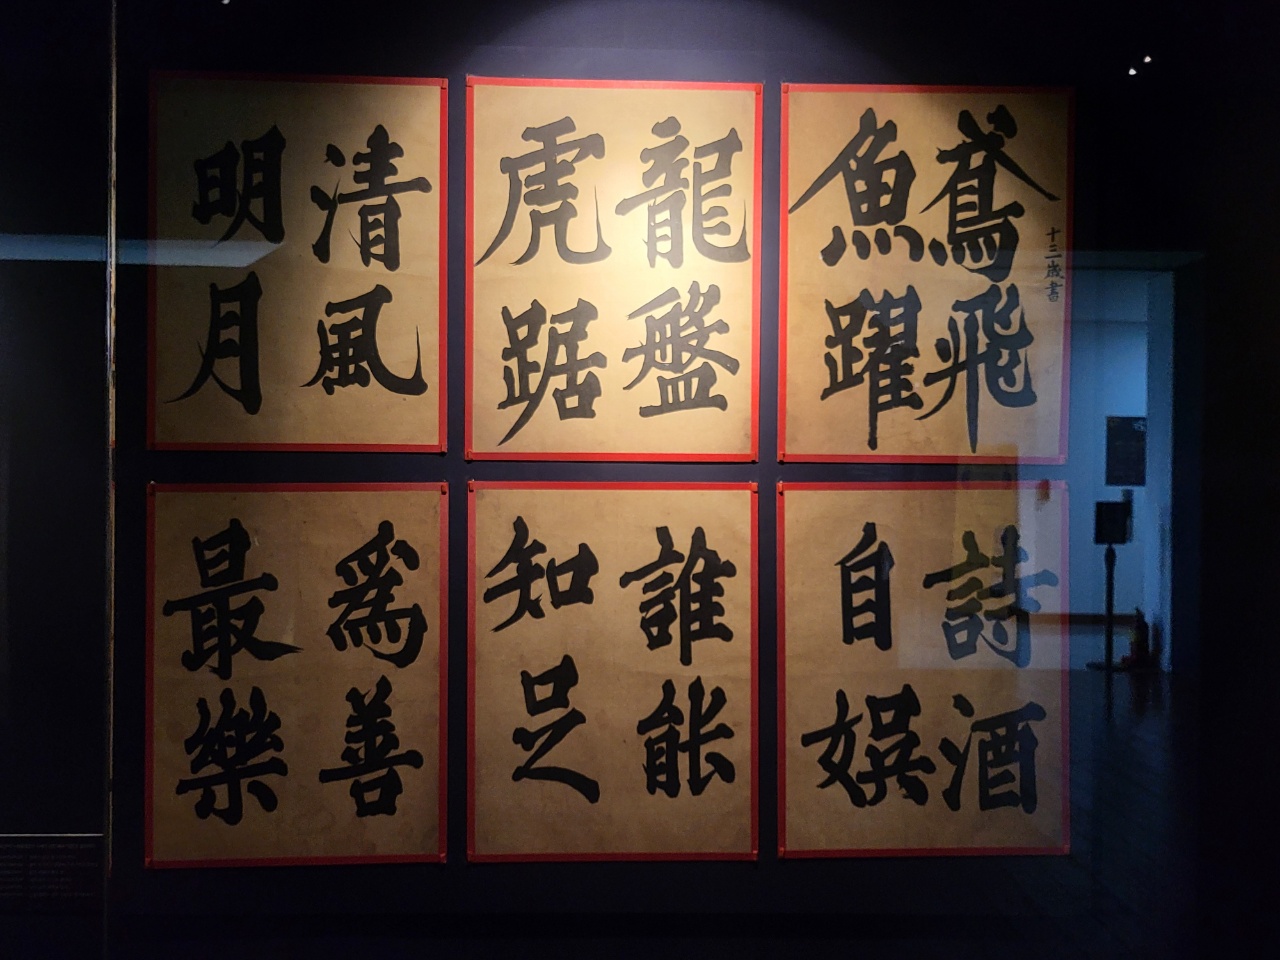 鳶飛
魚躍
十三歲書
龍盤
虎踞
清風
明月
詩酒
自娯
誰能
知足
爲善
最樂